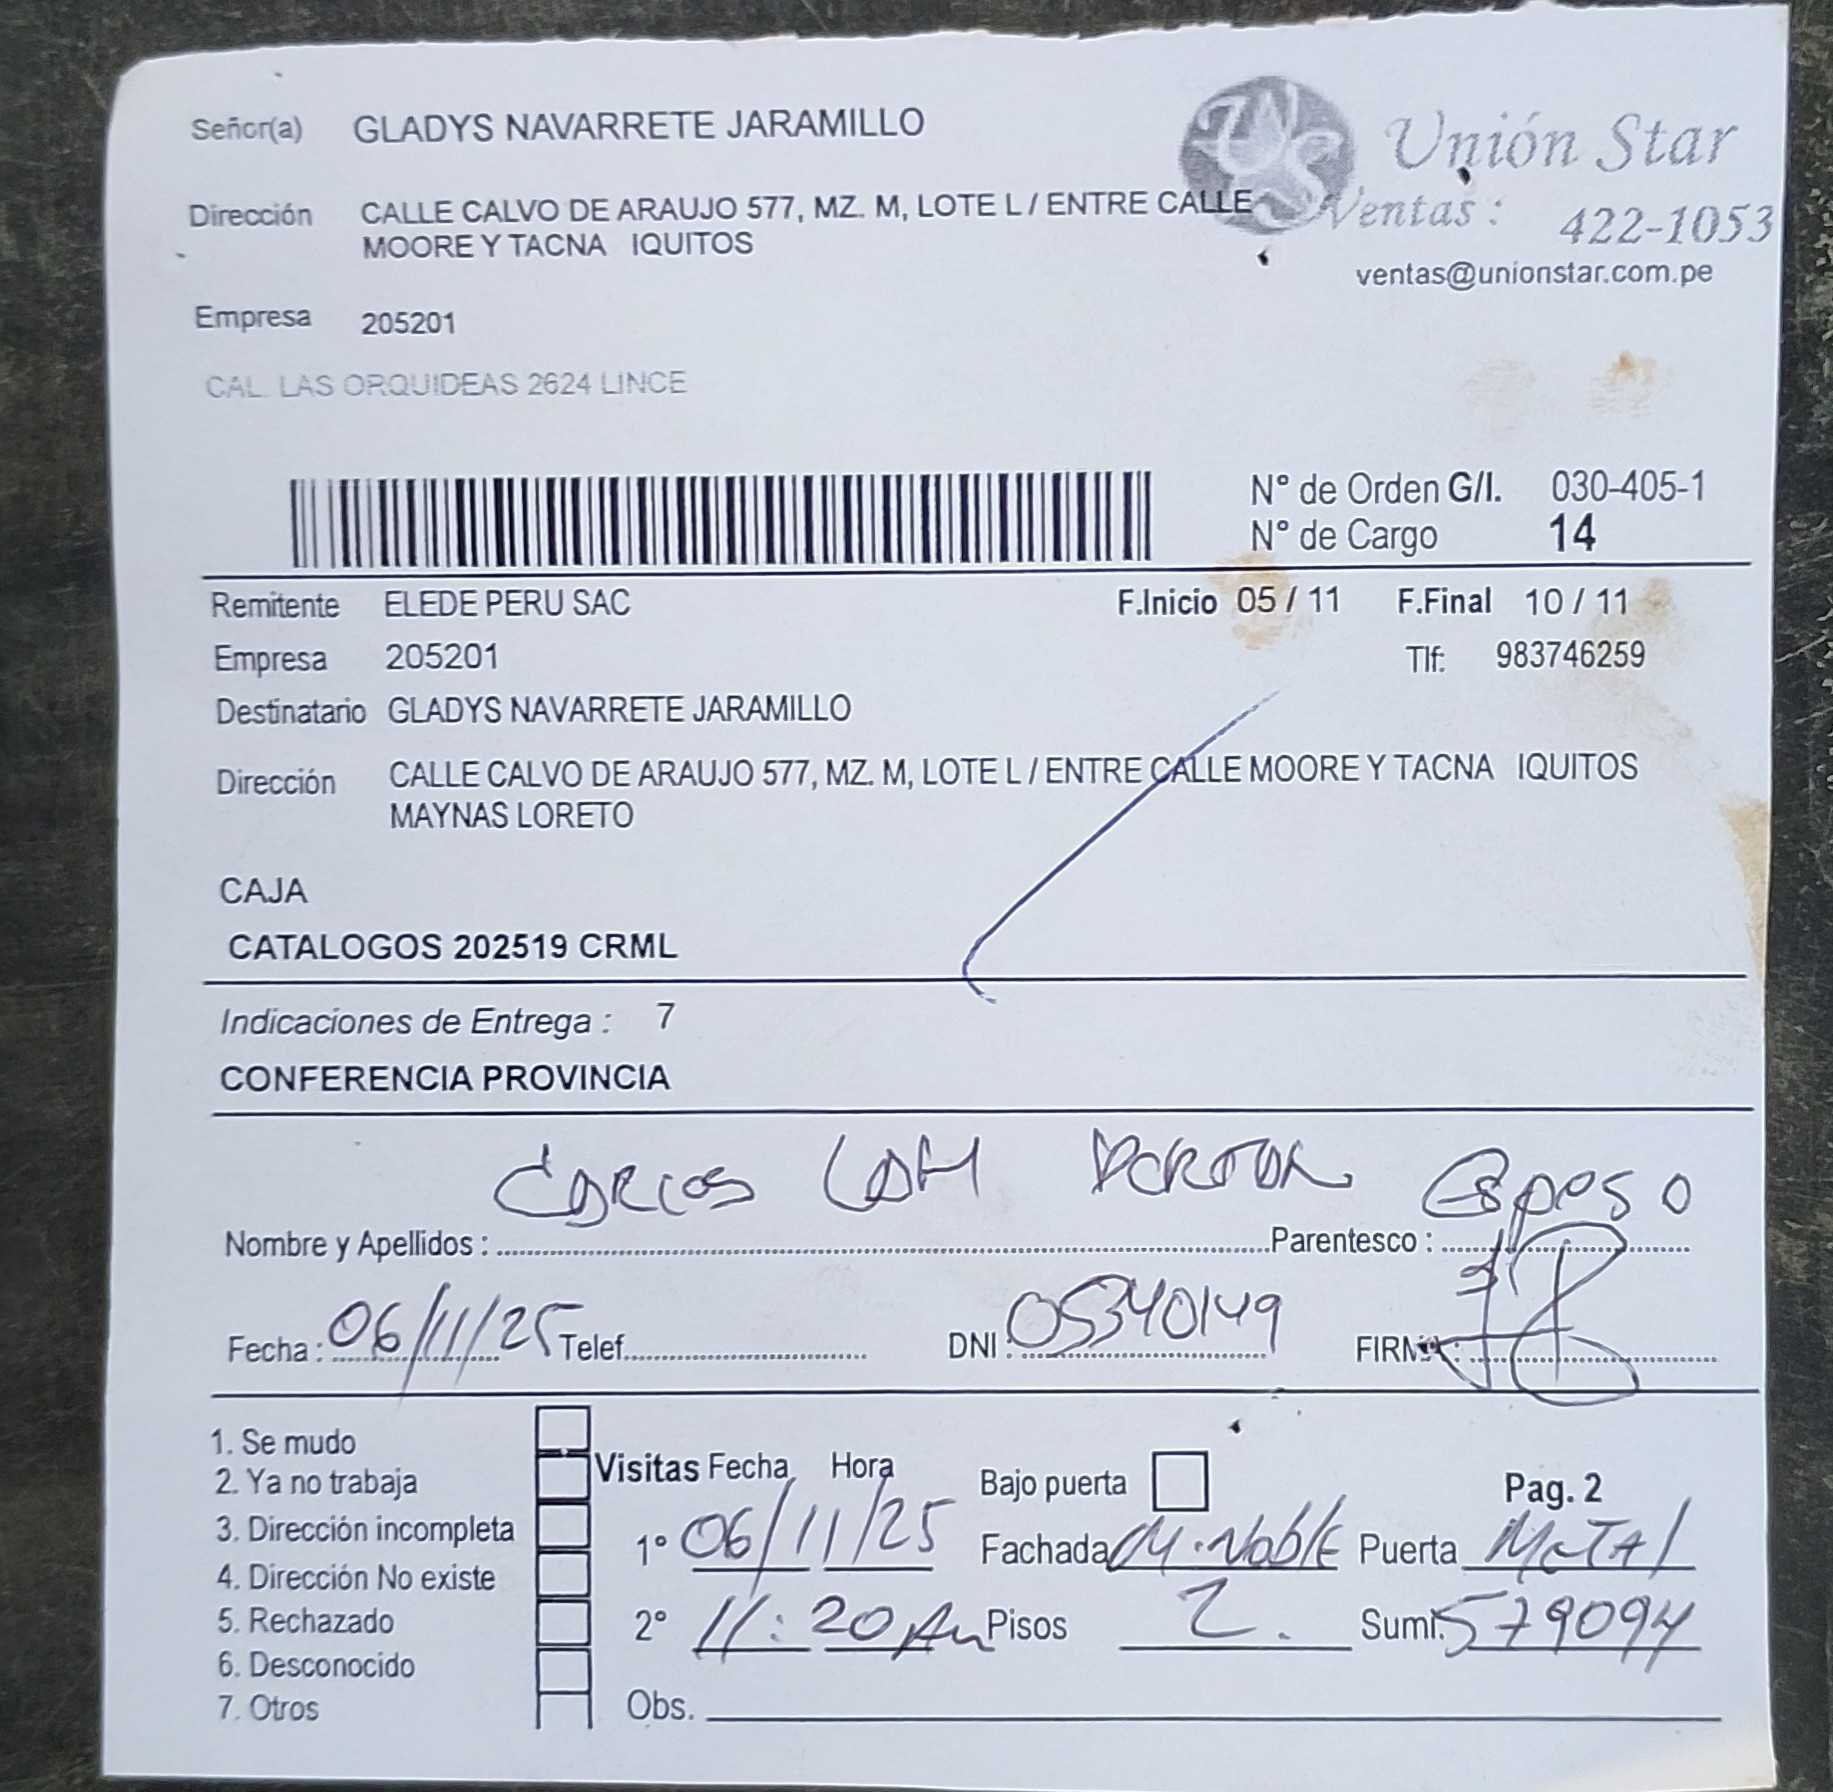 Señor(a) GLADYS NAVARRETE JARAMILLO
Unión Star
Dirección CALLE CALVO DE ARAUJO 577, MZ. M, LOTE L / ENTRE CALLE
MOORE Y TACNA IQUITOS
Ventas : 422-1053
ventas@unionstar.com.pe
Empresa 205201
CAL. LAS ORQUIDEAS 2624 LINCE
N° de Orden G/I. 030-405-1
N° de Cargo 14
Remitente ELEDE PERU SAC F.Inicio 05 / 11 F.Final 10 / 11
Empresa 205201 Tlf: 983746259
Destinatario GLADYS NAVARRETE JARAMILLO
Dirección CALLE CALVO DE ARAUJO 577, MZ. M, LOTE L / ENTRE CALLE MOORE Y TACNA IQUITOS
MAYNAS LORETO
CAJA
CATALOGOS 202519 CRML
Indicaciones de Entrega : 7
CONFERENCIA PROVINCIA
Nombre y Apellidos : Carlos Parentesco : Esposo
Fecha : 06/11/25 Telef. DNI : 05340149 FIRMA :
1. Se mudo
2. Ya no trabaja
3. Dirección incompleta
4. Dirección No existe
5. Rechazado
6. Desconocido
7. Otros
Visitas Fecha Hora Bajo puerta Pag. 2
1° 06/11/25 Fachada M. Noble Puerta Metal
2° 11:20 Am Pisos 2. Sumi. 579094
Obs.